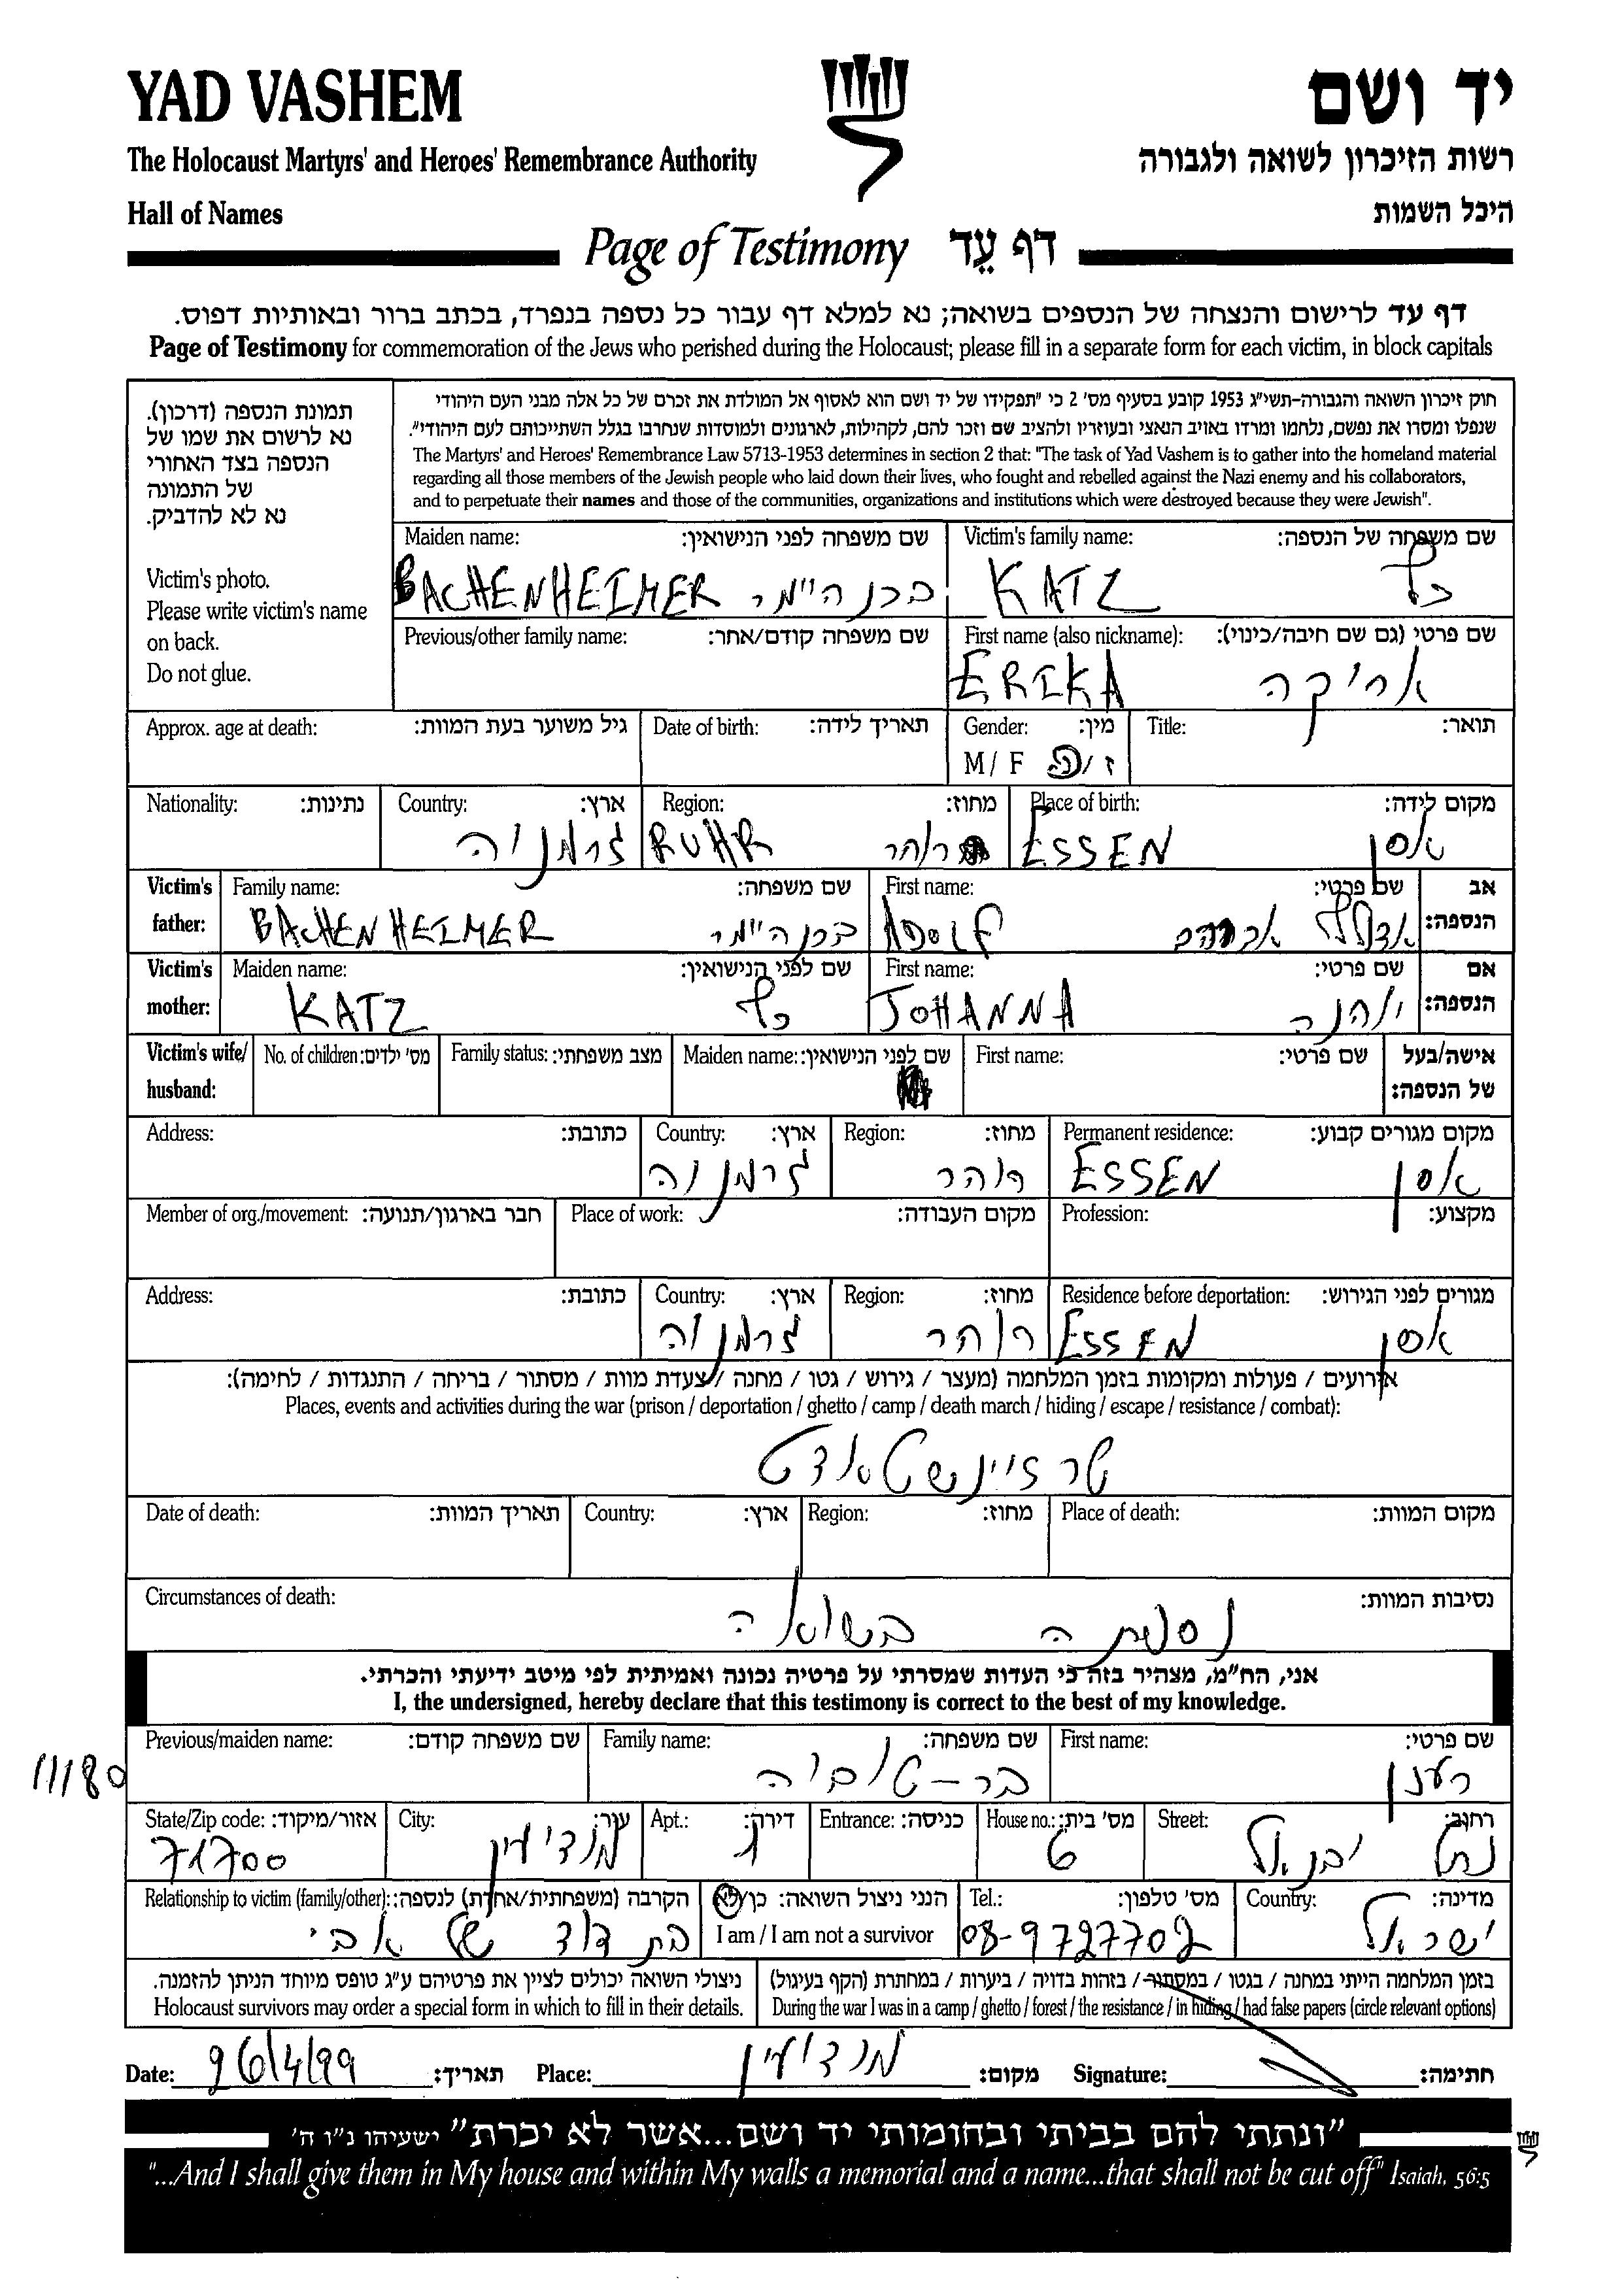 YAD VASHEM
יד ושם
The Holocaust Martyrs' and Heroes' Remembrance Authority
רשות הזיכרון לשואה ולגבורה
Hall of Names
היכל השמות
Page of Testimony דף עֵד
דף עד לרישום והנצחה של הנספים בשואה; נא למלא דף עבור כל נספה בנפרד, בכתב ברור ובאותיות דפוס.
Page of Testimony for commemoration of the Jews who perished during the Holocaust; please fill in a separate form for each victim, in block capitals
תמונת הנספה (דרכון).
נא לרשום את שמו של
הנספה בצד האחורי
של התמונה
נא לא להדביק.
Victim's photo.
Please write victim's name
on back.
Do not glue.
חוק זיכרון השואה והגבורה-תשי"ג 1953 קובע בסעיף מס' 2 כי "תפקידו של יד ושם הוא לאסוף אל המולדת את זכרם של כל אלה מבני העם היהודי
שנפלו ומסרו את נפשם, נלחמו ומרדו באויב הנאצי ובעוזריו ולהציב שם וזכר להם, לקהילות, לארגונים ולמוסדות שנחרבו בגלל השתייכותם לעם היהודי".
The Martyrs' and Heroes' Remembrance Law 5713-1953 determines in section 2 that: "The task of Yad Vashem is to gather into the homeland material
regarding all those members of the Jewish people who laid down their lives, who fought and rebelled against the Nazi enemy and his collaborators,
and to perpetuate their names and those of the communities, organizations and institutions which were destroyed because they were Jewish".
Maiden name: שם משפחה לפני הנישואין: Victim's family name: שם משפחה של הנספה:
BACHENHEIMER בכנהיימר KATZ כץ
Previous/other family name: שם משפחה קודם/אחר: First name (also nickname): שם פרטי (גם שם חיבה/כינוי):
ERIKA אריקה
Approx. age at death: גיל משוער בעת המוות: Date of birth: תאריך לידה: Gender: מין: Title: תואר:
M / F ז / נ
Nationality: נתינות: Country: ארץ: Region: מחוז: Place of birth: מקום לידה:
גרמניה RUHR רוהר ESSEN אסן
Victim's father: Family name: שם משפחה: First name: שם פרטי: אב הנספה:
BACHENHEIMER בכנהיימר ADOLF אדולף
Victim's mother: Maiden name: שם לפני הנישואין: First name: שם פרטי: אם הנספה:
KATZ כץ JOHANNA יוהנה
Victim's wife/ husband: No. of children: מס' ילדים: Family status: מצב משפחתי: Maiden name: שם לפני הנישואין: First name: שם פרטי: אישה/בעל של הנספה:
Address: כתובת: Country: ארץ: Region: מחוז: Permanent residence: מקום מגורים קבוע:
גרמניה רוהר ESSEN אסן
Member of org./movement: חבר בארגון/תנועה: Place of work: מקום העבודה: Profession: מקצוע:
Address: כתובת: Country: ארץ: Region: מחוז: Residence before deportation: מגורים לפני הגירוש:
גרמניה רוהר ESSEN אסן
אירועים / פעולות ומקומות בזמן המלחמה (מעצר / גירוש / גטו / מחנה / צעדת מוות / מסתור / בריחה / התנגדות / לחימה):
Places, events and activities during the war (prison / deportation / ghetto / camp / death march / hiding / escape / resistance / combat):
טרזיינשטאדט
Date of death: תאריך המוות: Country: ארץ: Region: מחוז: Place of death: מקום המוות:
Circumstances of death: נסיבות המוות:
נספתה בשואה
אני, הח"מ, מצהיר בזה כי העדות שמסרתי על פרטיה נכונה ואמיתית לפי מיטב ידיעתי והכרתי.
I, the undersigned, hereby declare that this testimony is correct to the best of my knowledge.
Previous/maiden name: שם משפחה קודם: Family name: שם משפחה: First name: שם פרטי:
11180 בר-טוביה רענן
State/Zip code: אזור/מיקוד: City: עיר: Apt.: דירה: Entrance: כניסה: House no.: מס' בית: Street: רחוב:
71700 מודיעין 1 6 נחל יבנאל
Relationship to victim (family/other): הקרבה (משפחתית/אחרת) לנספה: הנני ניצול השואה: כן/לא Tel.: מס' טלפון: Country: מדינה:
בת דוד של אבי I am / I am not a survivor 08-9727702 ישראל
ניצולי השואה יכולים לציין את פרטיהם ע"ג טופס מיוחד הניתן להזמנה. בזמן המלחמה הייתי במחנה / בגטו / במסתור / בזהות בדויה / ביערות / במחתרת (הקף בעיגול)
Holocaust survivors may order a special form in which to fill in their details. During the war I was in a camp / ghetto / forest / the resistance / in hiding / had false papers (circle relevant options)
Date: 26/4/99 תאריך: Place: מודיעין מקום: Signature: חתימה:
"ונתתי להם בביתי ובחומותי יד ושם...אשר לא יכרת" ישעיהו נ"ו ה'
"...And I shall give them in My house and within My walls a memorial and a name...that shall not be cut off" Isaiah, 56:5